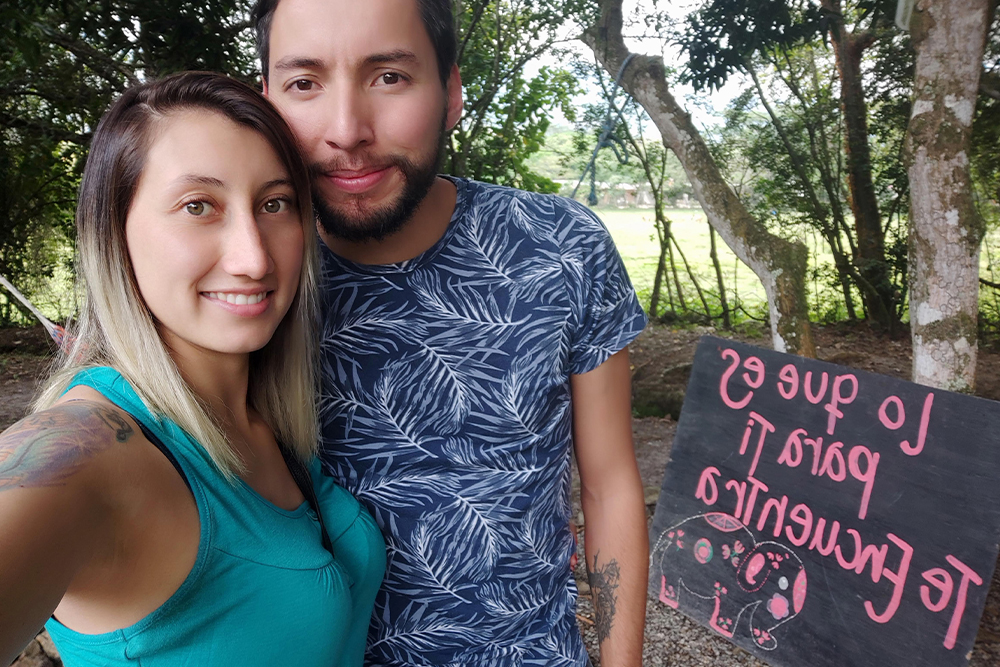 Lo que es
para Ti
Te Encuentra